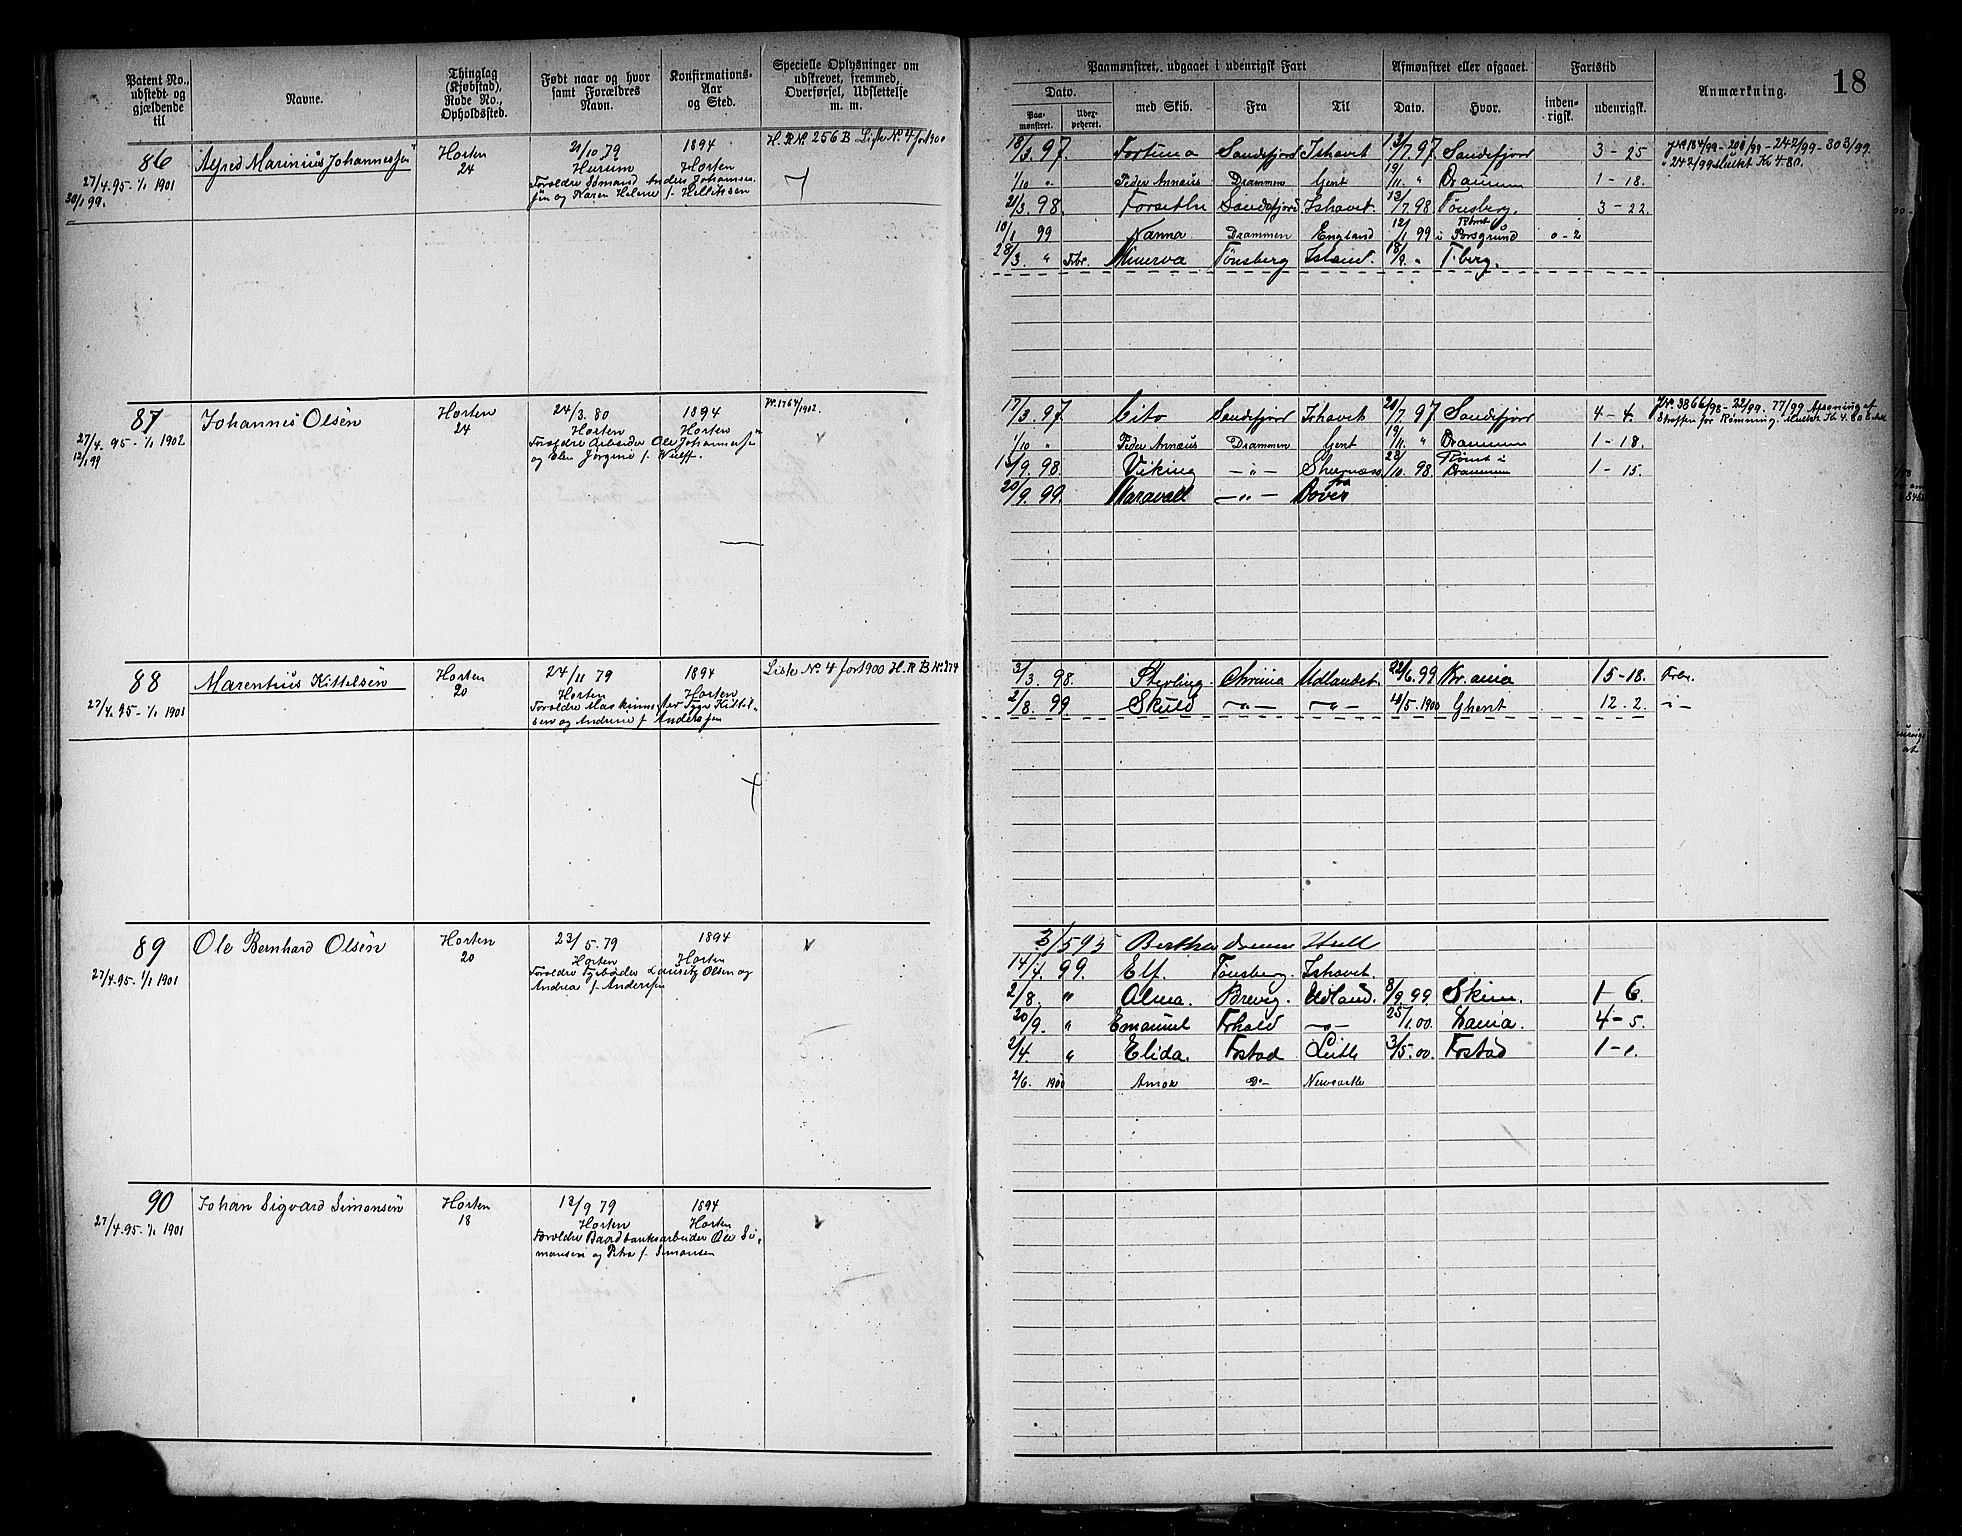 Patent No., udstedt og gjældende til
Navne.
Thinglag (Kjøbstad), Rode No., Opholdssted.
Født naar og hvor samt Forældres Navn.
Konfirmations-Aar og Sted.
Specielle Oplysninger om udskrevet, fremmed, Overførsel, Udslettelse m. m.
Paamønstret, udgaaet i udenrigsk Fart
Afmønstret eller afgaaet.
Fartstid
Anmærkning.
18
Dato.
Paa-mønstret.
med Skib.
Fra
Til
Dato.
Hvor.
inden-rigsk.
udenrigsk.
86
27/4.95-1/1 1901
30/1 99.
Alfred Marinius Johannessen
Horten
24
21/10 79
Hurum
Forældre Sømand Anders Johannes-
sen og Karen Helene f.
1894
Horten
H.R.No 256 B Liste No 4 for 1900
18/3.97. Fortuna Sandefjord Ishavet 13/7.97 Sandefjord 3-25
1/10 " Peder Annæus Drammen Gent 19/11. " Drammen 1-18.
21/3.98. Forsethe Sandefjord Ishavet. 13/7.98 Tønsberg. 3-22.
10/1 99 Nanna Drammen England 12/1 99 Rømt i Porsgrund 0-2
28/3. " Frbr. Minerva Tønsberg Island. 18/9. " T.berg.
87
27/4.95-1/1 1902
12/1 99
Johannes Olsen
Horten
24
24/3.80
Horten
Forældre Arbeider Ole Johannessen
og Elen Jørgine f. Wulff.
1894
Horten
17/3.97. Cito Sandefjord Ishavet 21/7.97 Sandefjord 4-4.
1/10 " Peder Annæus Drammen Gent 19/11. " Drammen 1-18.
13/9.98. Viking -"- Sheerness 28/10.98 Rømt i Drammen 1-15.
20/9.99. Maravall -"- Dover
Afsoning af
Straffen for Rømning.
88
27/4.95-1/1 1901
Marentius Kittelsen
Horten
20
24/11 79
Horten
Forældre Maskinmster Kittel-
sen og Andrine f. Anderssen
1894
Horten
Liste No 4 for 1900 H.R.B No 274
3/3.98. Sterling. Chrinia Udlandet. 22/6.99 Kr.ania 15-18. Frbr.
2/8.99 Skuld -"- -"- 4/5.1900 Ghent 12.2. -"-
89
27/4.95-1/1 1901
Ole Bernhard Olsen
Horten
20
23/5.79
Horten
Forældre Lauritz Olsen og
Andrea f. Anderssen
1894
Horten
3/5 95 Bertha Hull
14/4.99. Elf. Tønsberg. Ishavet.
2/8. " Alma. Brevig. Udland. 8/9 99. Skien. 1-6.
20/9. " Emanuel F.hald -"- 25/1.00. 4-5.
2/4. " Elida. F.stad Leith 3/5.00. F.stad 1-1.
2/6. 1900 Amor Do- Newcastle
90
27/4.95-1/1 1901
Johan Sigvard Simonsen
Horten
18
13/9 79
Horten
Forældre Baadbanksarbeider Ole Si-
monsen og Petra f. Simonsen
1894
Horten